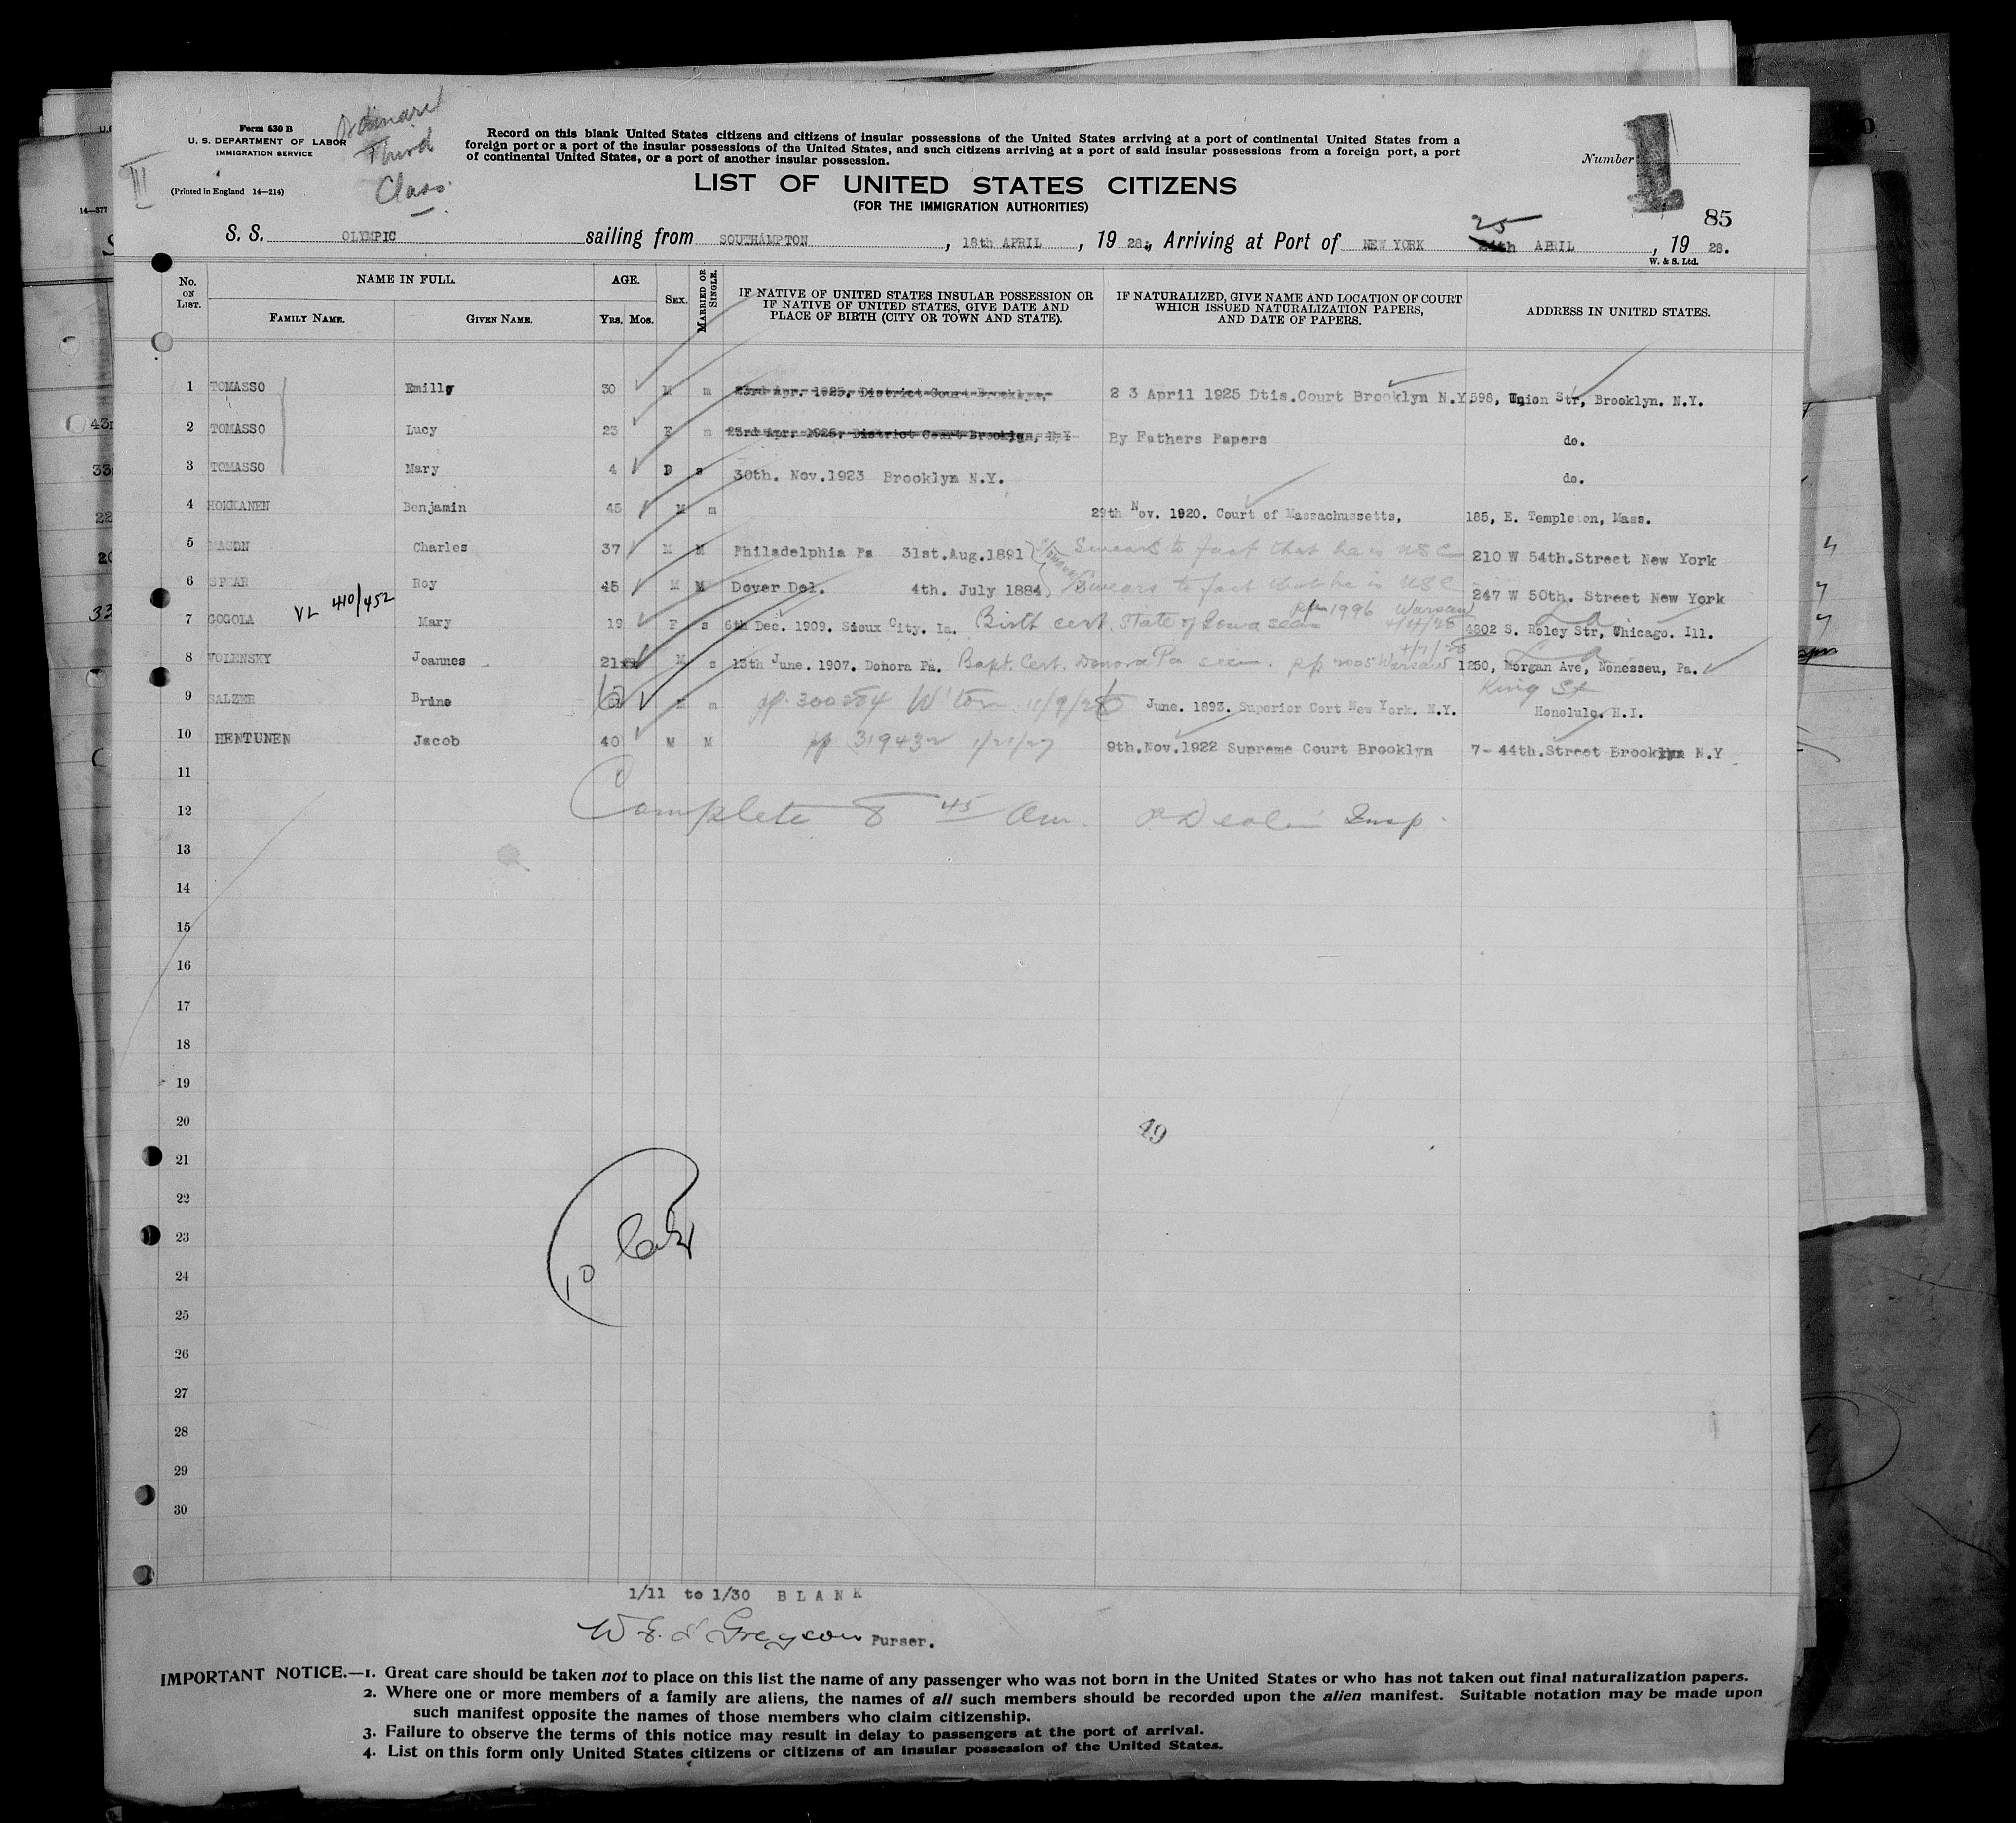 Form 630 B
U. S. DEPARTMENT OF LABOR
IMMIGRATION SERVICE
(Printed in England 14—214)
III
Ordinary
Third
Class.
Record on this blank United States citizens and citizens of insular possessions of the United States arriving at a port of continental United States from a
foreign port or a port of the insular possessions of the United States, and such citizens arriving at a port of said insular possessions from a foreign port, a port
of continental United States, or a port of another insular possession.
Number 1
LIST OF UNITED STATES CITIZENS
(FOR THE IMMIGRATION AUTHORITIES)
85
S. S. OLYMPIC sailing from SOUTHAMPTON, 18th APRIL, 1928., Arriving at Port of NEW YORK 25 24th APRIL, 1928.
W. & S. Ltd.
No. ON LIST. NAME IN FULL. FAMILY NAME. GIVEN NAME. AGE. YRS. MOS. SEX. MARRIED OR SINGLE. IF NATIVE OF UNITED STATES INSULAR POSSESSION OR IF NATIVE OF UNITED STATES, GIVE DATE AND PLACE OF BIRTH (CITY OR TOWN AND STATE). IF NATURALIZED, GIVE NAME AND LOCATION OF COURT WHICH ISSUED NATURALIZATION PAPERS, AND DATE OF PAPERS. ADDRESS IN UNITED STATES.
1 TOMASSO Emilly 30 M m 23rd Apr. 1925. District Court Brooklyn, 2 3 April 1925 Dtis.Court Brooklyn N.Y 598, Union Str, Brooklyn. N.Y.
2 TOMASSO Lucy 23 F m 23rd Apr. 1925. District Court Brooklyn, N.Y By Fathers Papers do.
3 TOMASSO Mary 4 D s 30th. Nov.1923 Brooklyn N.Y. do.
4 HOKKANEN Benjamin 45 M m 29th Nov. 1920. Court of Massachussetts, 185, E. Templeton, Mass.
5 MASON Charles 37 M M Philadelphia Pa 31st.Aug.1891 Swears to fact that he is USC 210 W 54th.Street New York
6 SPEAR Roy 45 M M Dover Del. 4th. July 1884 Swears to fact that he is USC 247 W 50th. Street New York
7 GOGOLA VL 410/452 Mary 19 F s 6th Dec. 1909. Sioux City. Ia. Birth cert. State of Iowa seen 1996 Warsaw 4802 S. Holey Str, Chicago. Ill.
8 WOLENSKY Joannes 21 M s 13th June. 1907. Donora Pa. Bapt. Cert. Donora Pa seen. pp 2005 Warsaw 1250, Morgan Ave, Nonesseu, Pa.
9 SALZER Bruno M m pp. 300284 June. 1893. Superior Cort New York. N.Y. King St Honolulo. H.I.
10 HENTUNEN Jacob 40 M M pp 319432 1/21/27 9th.Nov.1922 Supreme Court Brooklyn 7- 44th.Street Brooklyn N.Y
11
12 Complete 8 45 am. Insp.
13
14
15
16
17
18
19
20
49
21
22
23
10
24
25
26
27
28
29
30
1/11 to 1/30 BLANK
Purser.
IMPORTANT NOTICE.—1. Great care should be taken not to place on this list the name of any passenger who was not born in the United States or who has not taken out final naturalization papers.
2. Where one or more members of a family are aliens, the names of all such members should be recorded upon the alien manifest. Suitable notation may be made upon
such manifest opposite the names of those members who claim citizenship.
3. Failure to observe the terms of this notice may result in delay to passengers at the port of arrival.
4. List on this form only United States citizens or citizens of an insular possession of the United States.